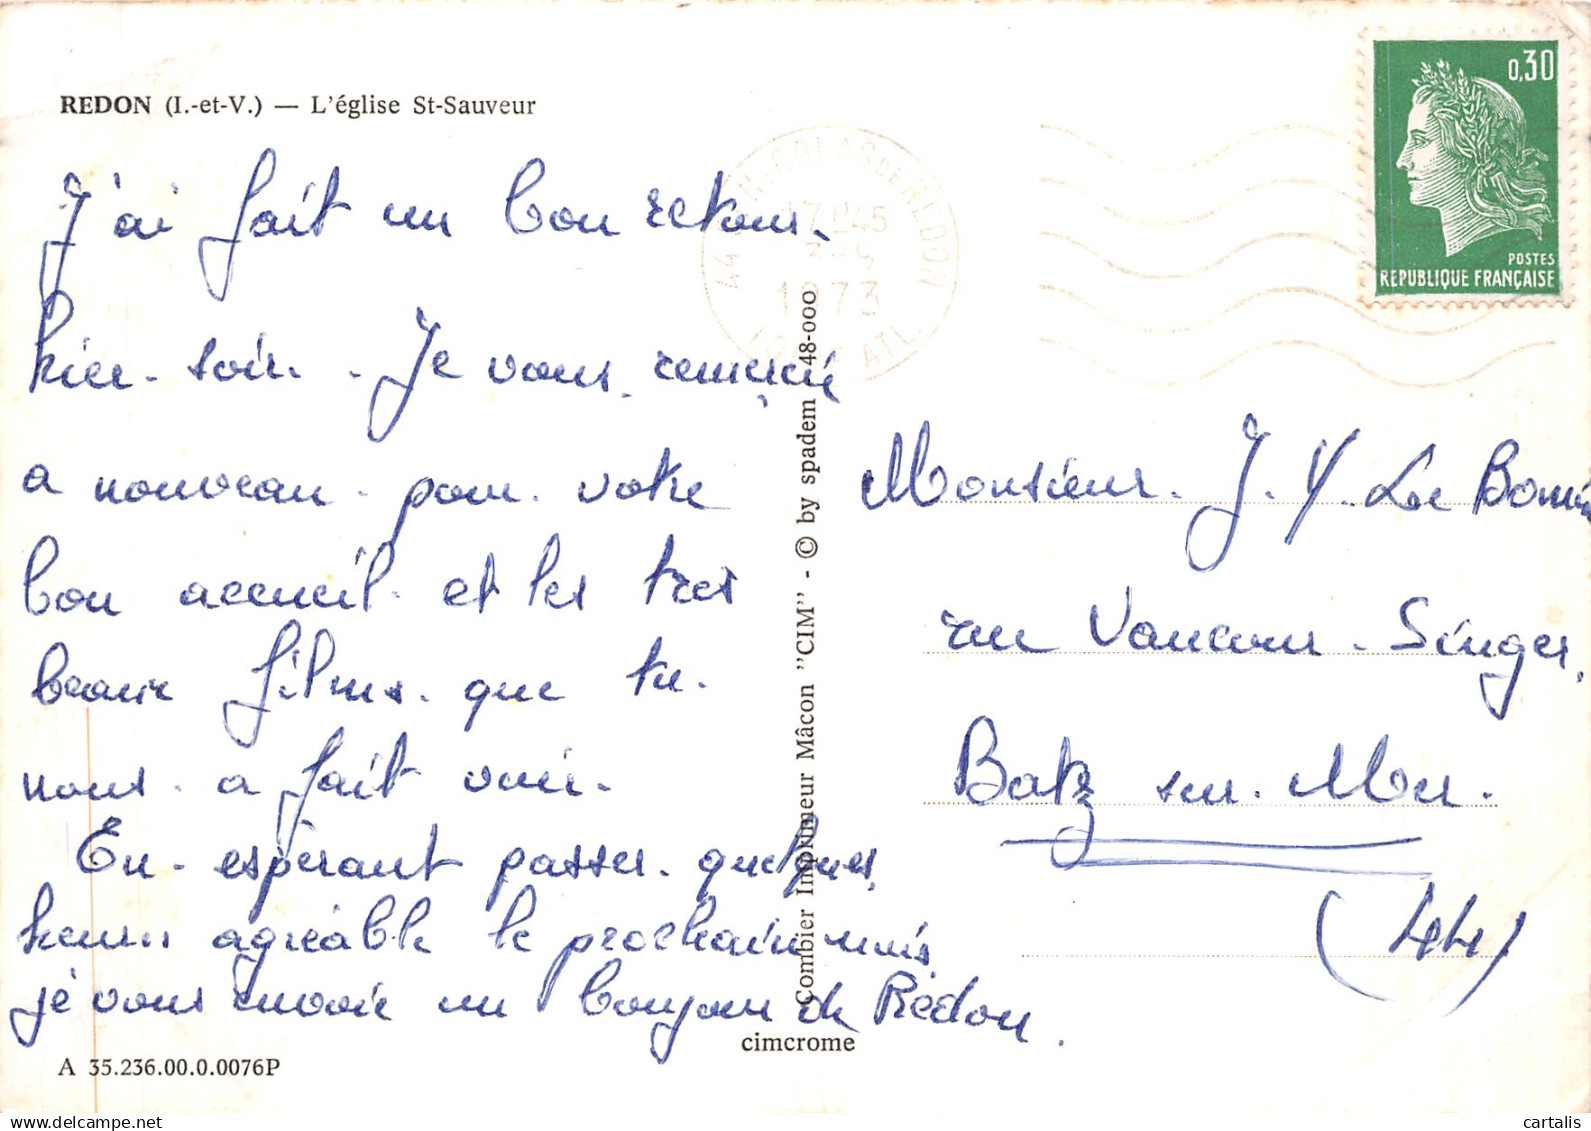 REDON (I.-et-V.) — L'église St-Sauveur
J'ai fait un bon retour
hier soir. Je vous remercie
a nouveau pour votre
bon accueil et les tres
beaux films que tu
nous a fait voir.
En espérant passer quelques
heures agréable le prochain mois
je vous envoie un bonjour de Redon.
A 35.236.00.0.0076P
Combier Imprimeur Mâcon "CIM" - © by spadem 48-000
cimcrome
0,30
POSTES
REPUBLIQUE FRANÇAISE
44 ST NICOLAS DE REDON
17H45
1973
LOIRE ATL.
Monsieur J. Y. Le Bomin
rue Vaucour-Singer
Batz sur Mer.
(44)
cartalis
delcampe.net